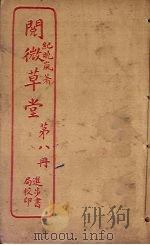 紀曉嵐著
閱微草堂
第八冊
進步書
局校印